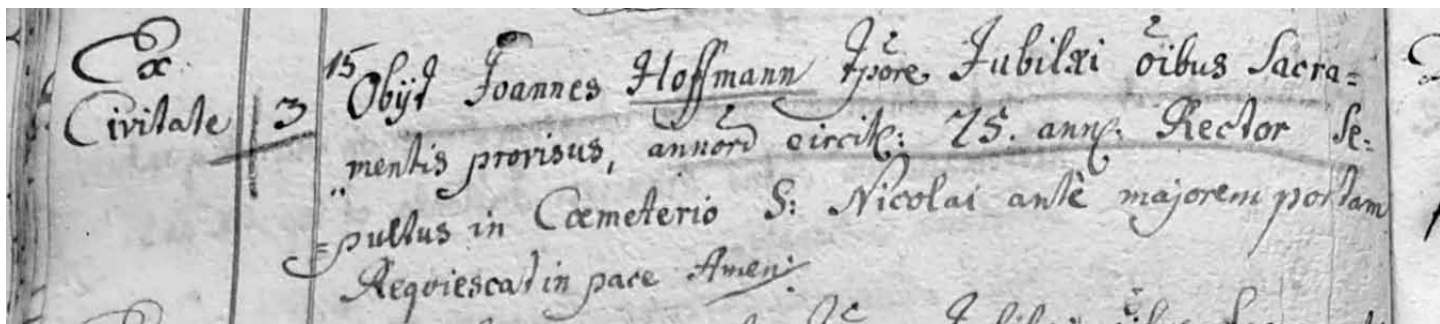 Ex
Civitate
3
15
Obijt Joannes Hoffmann Tp̃ore Jubilæi õibus Sacra=
"mentis provisus, annorũ circit: 75. ann: Rector Se:
=pultus in Cœmeterio S: Nicolai antè majorem portam
Requiescat in pace Amen: